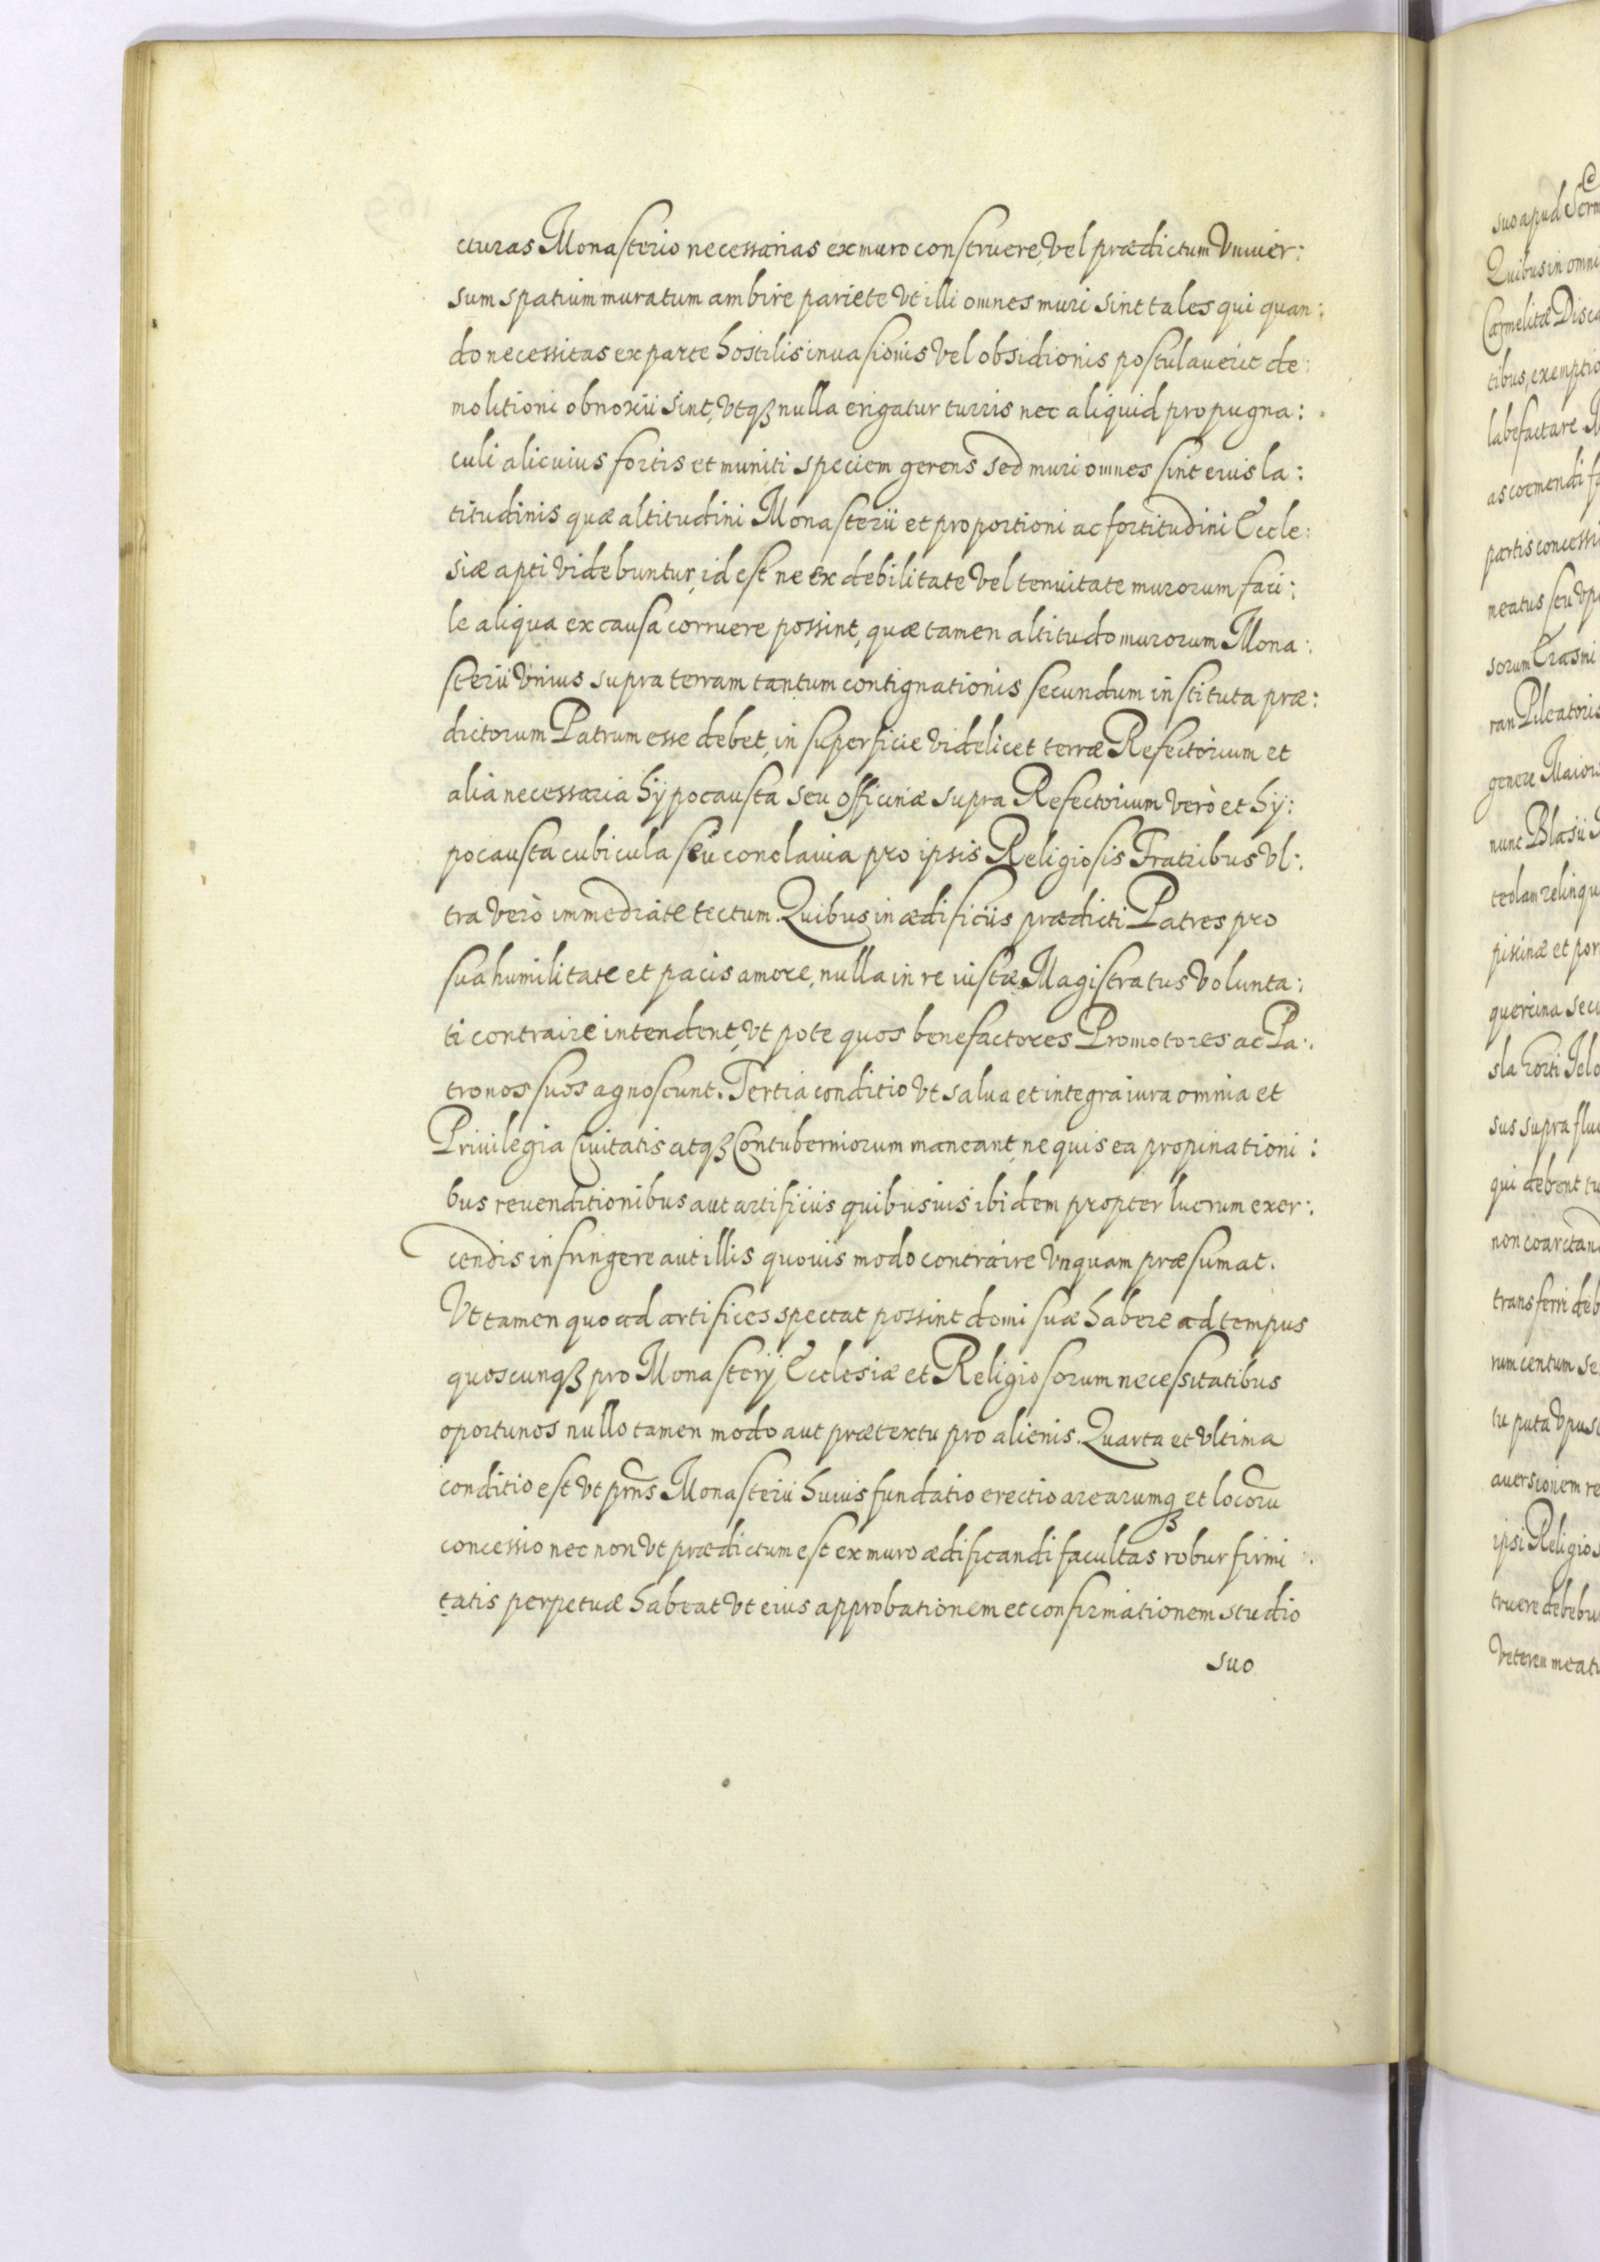 cturas Monasterio necessarias ex muro construere, vel prædictum vniuer:
sum spatium muratum ambire pariete vt illi omnes muri sint tales qui quan:
do necessitas ex parte hostilis inuasionis vel obsidionis postulauerit de:
molitioni obnoxii sint, vtqꝫ nulla erigatur turris nec aliquid propugna:
culi alicuius fortis et muniti speciem gerens sed muri omnes sint eius la:
titudinis quæ altitudini Monasterii et proportioni ac fortitudini Eccle:
siæ apti videbuntur, id est ne ex debilitate vel tenuitate murorum faci:
le aliqua ex causa corruere possint, quæ tamen altitudo murorum Mona:
sterii vnius supra terram tantum contignationis secundum instituta præ:
dictorum Patrum esse debet, in superficie videlicet terræ Refectorium et
alia necessaria hypocausta seu officinæ supra Refectorium verò et hy:
pocausta cubicula seu conclauia pro ipsis Religiosis Fratribus vl:
tra verò immediate tectum. Quibus in ædificiis prædicti Patres pro
sua humilitate et pacis amore, nulla in re iustæ Magistratus volunta:
ti contraire intendent, vt pote quos benefactores Promotores ac Pa:
tronos suos agnoscunt. Tertia conditio vt salua et integra iura omnia et
Priuilegia Ciuitatis atqꝫ Contuberniorum maneant, ne quis ea propinationi:
bus reuenditionibus aut artificiis quibusuis ibidem propter lucrum exer:
cendis infringere aut illis quouis modo contraire vnquam præsumat.
Vt tamen quo ad artifices spectat possint domi suæ habere ad tempus
quoscunqꝫ pro Monasterij Ecclesiæ et Religiosorum necessitatibus
oportunos nullo tamen modo aut prætextu pro alienis. Quarta et vltima
conditio est vt pr̃ns Monasterii huius fundatio erectio arearumqꝫ et locorũ
concessio nec non vt prædictum est ex muro ædificandi facultas robur firmi:
tatis perpetuæ habeat vt eius approbationem et confirmationem studio
suo
suo apud Serm
Quibus in omni
Carmelitæ Disca
tibus, exemptio
labefactare
as coemendi
partis concessi
neatus seu
sorum Erasmi
ran Pileatoris
genere Maiori
nunc Blasii
teolam relinqu
piscinæ et por
quercina secu
sla horti
sus supra flu
qui debent
non coarctand
transferri deb
rum centum
tu puta
auersionem re
ipsi Religios
truere debebu
Veterem meatu